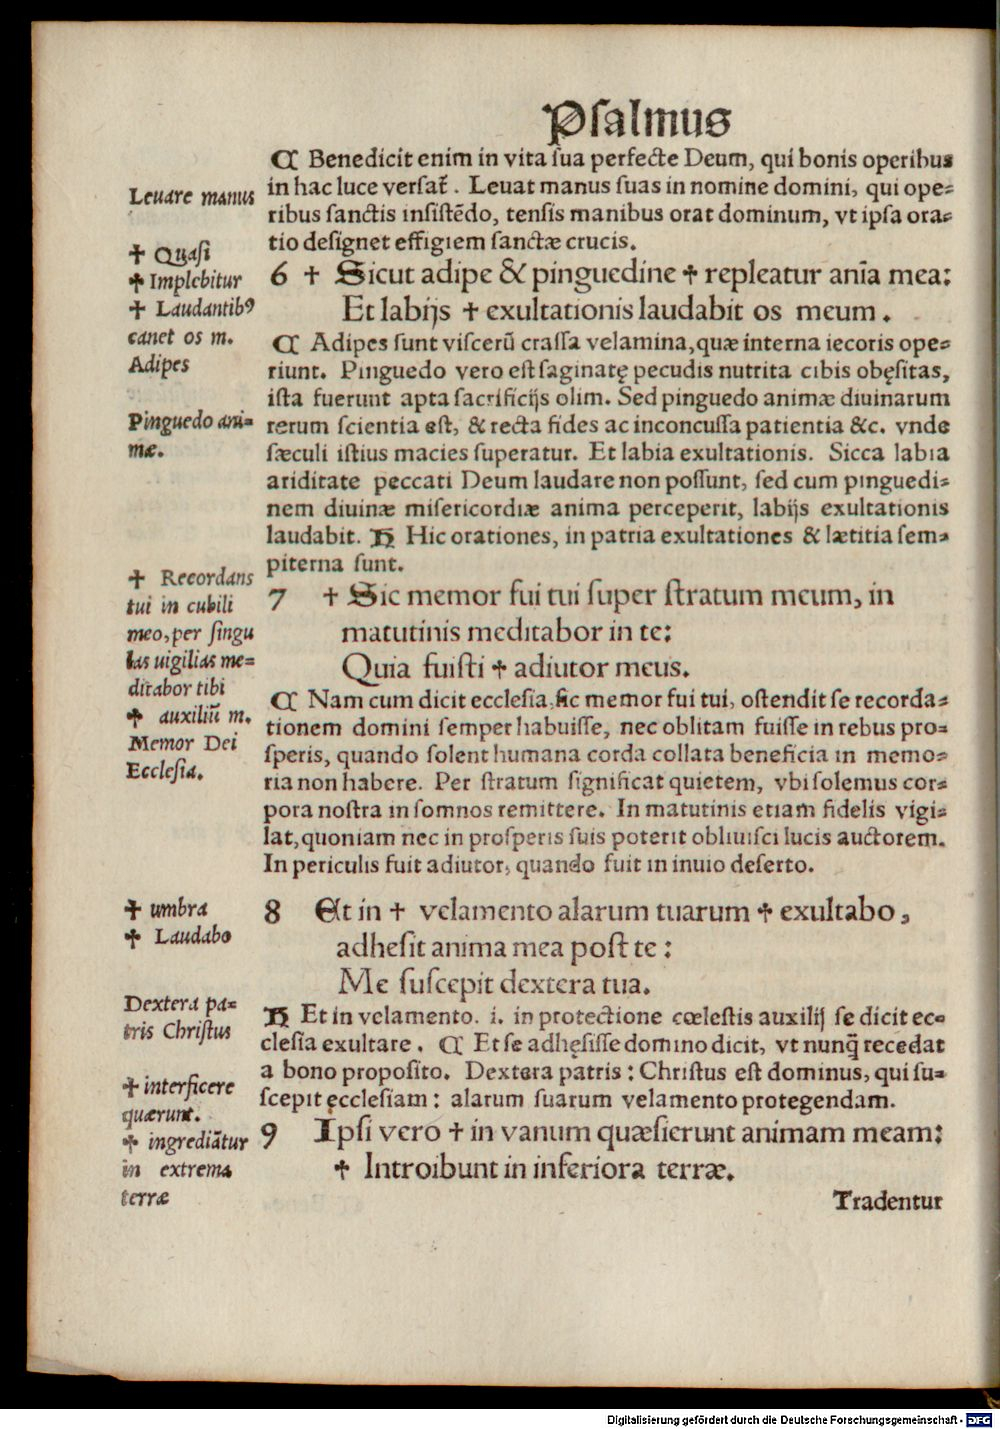 Psalmus
ℂ Benedicit enim in vita ſua perfecte Deum, qui bonis operibus
in hac luce verſat᷑. Leuat manus ſuas in nomine domini, qui ope⸗
ribus ſanctis inſiſtēdo, tenſis manibus orat dominum, vt ipſa ora⸗
tio deſignet effigiem ſanctæ crucis.
Leuare manus
✝ Quaſi
✝ Implebitur
✝ Laudantibꝰ
canet os m.
Adipes
Pinguedo ani⸗
mæ.
6 ✝ Sicut adipe & pinguedine ✝ repleatur anīa mea:
Et labijs ✝ exultationis laudabit os meum.
ℂ Adipes ſunt viſcerū craſſa velamina, quæ interna iecoris ope⸗
riunt. Pinguedo vero eſt ſaginatę pecudis nutrita cibis obęſitas,
iſta fuerunt apta ſacrificijs olim. Sed pinguedo animæ diuinarum
rerum ſcientia eſt, & recta fides ac inconcuſſa patientia &c. vnde
ſæculi iſtius macies ſuperatur. Et labia exultationis. Sicca labia
ariditate peccati Deum laudare non poſſunt, ſed cum pinguedi⸗
nem diuinæ miſericordiæ anima perceperit, labijs exultationis
laudabit. H Hic orationes, in patria exultationes & lætitia ſem⸗
piterna ſunt.
✝ Recordans
tui in cubili
meo, per ſingu
las uigilias me⸗
ditabor tibi
✝ auxiliū m.
Memor Dei
Eccleſia.
7 ✝ Sic memor fui tui ſuper ſtratum meum, in
matutinis meditabor in te:
Quia fuiſti ✝ adiutor meus.
ℂ Nam cum dicit eccleſia, ſic memor fui tui, oſtendit ſe recorda⸗
tionem domini ſemper habuiſſe, nec oblitam fuiſſe in rebus pro⸗
ſperis, quando ſolent humana corda collata beneficia in memo⸗
ria non habere. Per ſtratum ſignificat quietem, vbi ſolemus cor⸗
pora noſtra in ſomnos remittere. In matutinis etiam fidelis vigi⸗
lat, quoniam nec in proſperis ſuis poterit obliuiſci lucis auctorem.
In periculis fuit adiutor, quando fuit in inuio deſerto.
✝ umbra
✝ Laudabo
Dextera pa⸗
tris Chriſtus
8 Et in ✝ velamento alarum tuarum ✝ exultabo,
adheſit anima mea poſt te:
Me ſuſcepit dextera tua.
H Et in velamento. i. in protectione cœleſtis auxilij ſe dicit ec⸗
cleſia exultare. ℂ Et ſe adhęſiſſe domino dicit, vt nunq̃ recedat
a bono propoſito. Dextera patris: Chriſtus eſt dominus, qui ſu⸗
ſcepit ęccleſiam: alarum ſuarum velamento protegendam.
✝ interficere
quærunt.
✝ ingrediātur
in extrema
terræ
9 Ipſi vero ✝ in vanum quæſierunt animam meam:
✝ Introibunt in inferiora terræ.
Tradentur
Digitalisierung gefördert durch die Deutsche Forschungsgemeinschaft - DFG